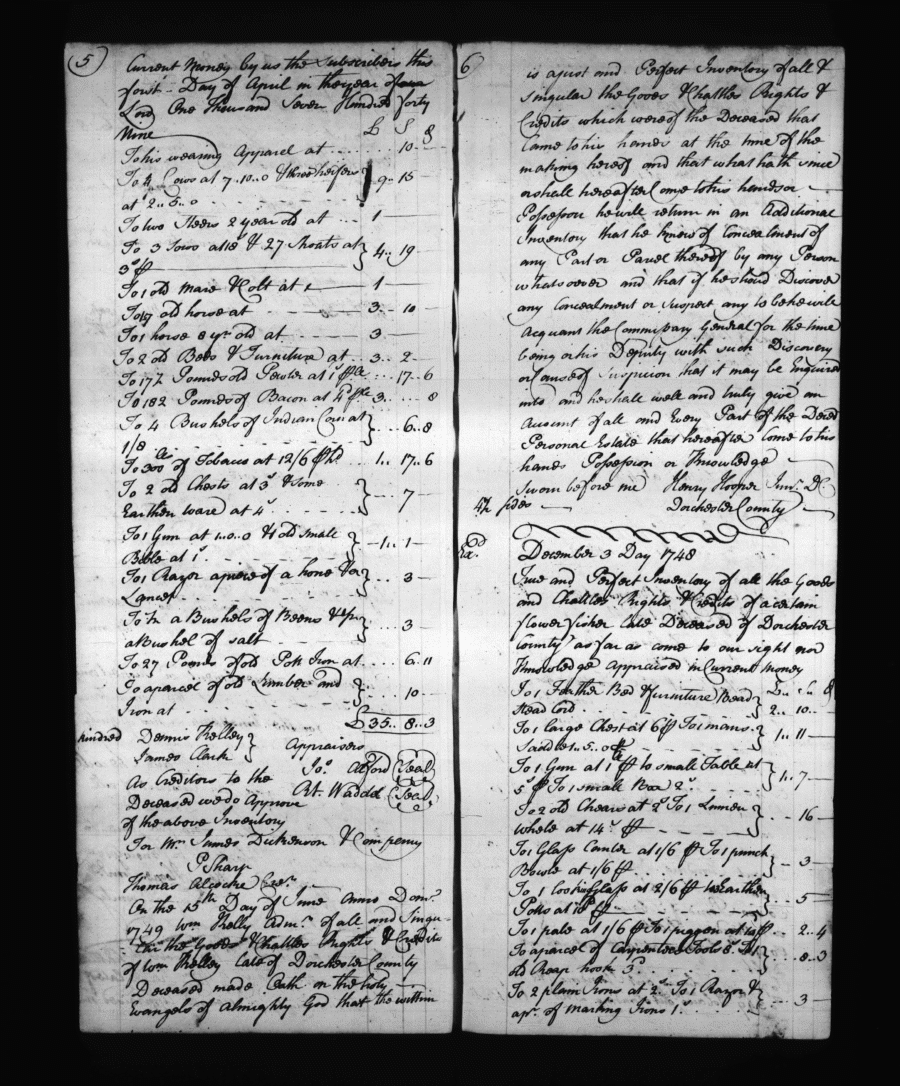 5
Current Money by us the Subscribers this
first Day of April in the year of our
Lord One Thousand Seven Hundred forty
Nine
£ S
To his wearing Apparel at 10
To 4 Cows at 7..10..0 & three heifers
at 2..5..0 9.. 15
To two Steers 2 year old at 1
To 3 Sows at 18s & 27 Shoats at
3s 4.. 19
To 1 old mare & Colt at 1
To old horse at 3.. 10
To 1 horse 8 yr old at 3
To 2 old Beds & Furniture at 3.. 2
To 17½ Pounds old Pewter at 1s 17.. 6
To 182 Pounds of Bacon at 4d 3.... 8
To 4 Bushels of Indian Corn at
1/8 6..8
To 300 of Tobacco at 12/6 1.. 17..6
To 2 old Chests at 3s & some
Earthen ware at 4s 7
To 1 Gun at 1..0..0 & 1 old small
Bible at 1s 1.. 1
To 1 Razor a piece of a hone &
Lancet 3
To a Bushels of Beens &
a Bushel of salt 3
To 27 Pounds of old Pott Iron at 6..11
To a parcel of old Lumber and
Iron at 10
£35.. 8..3
hundred Dennis Kelley
James Clark Appraisers
As Creditors to the Jos. Alford (Seal)
Deceased we do Approve Pt. Waddel (Seal)
of the above Inventory
For Mr James Dickenson & Compeny
P Sharp
Thomas Alcocke
On the 15th Day of June Anno Dom.
1749 Wm Kelly Admr. of all and Singu-
lar the Goods & Chattles Rights & Credits
of Wm Kelley late of Dorchester County
Deceased made Oath on the holy
Evangels of Almighty God that the within
6
is a just and Perfect Inventory of all &
Singular the Goods & Chattles Rights &
Credits which were of the Deceased that
Came to his hands at the time of the
making hereof and that what hath since
or shall hereafter Come to his hands or
Possession he will return in an Additional
Inventory that he knows of Concealment of
any Part or Parcel thereof by any Person
whatsoever and that if he should Discover
any Concealment or Suspect any to be he will
Acquant the Commissary General for the time
being or his Deputy with such Discovery
or Cause of Suspicion that it may be Inquired
into and he shall well and truly give an
Account of all and Every Part of the Deced
Personal Estate that hereafter Come to his
hands Possession or Knowledge
Sworn before me Henry Hooper Junr. D C
sides Dorchester County
Exd.
December 3 Day 1748
True and Perfect Inventory of all the Goods
and Chattles Rights & Credits of a certain
flower fisher late Deceased of Dorchester
County as far as come to our sight nor
Knowledge Appraised in Current Money
To 1 Feather Bed & furniture Bead
stead Cord 2.. 10
To 1 large Chest at 6s To 1 mans
Saddle 1..5..0 1.. 11
To 1 Gun at 1£ to small Table at
5s To 1 small Box 2s 1.. 7
To 2 old Chears at 2s To 1 Linnen
Whele at 14s 16
To 1 Glass Canter at 1/6 To 1 punch
Bowle at 1/6 3
To 1 Looking Glass at 2/6 to Earthen
Potts at 5
To 1 pale at 1/6 To 1 piggon at 2.. 4
To a parcel of Carpenters Tools 8s To 1
old Reap hook 3d 8..3
To 2 plain Irons at 2s To 1 Razor &
a pr. of marking Irons 1s 3